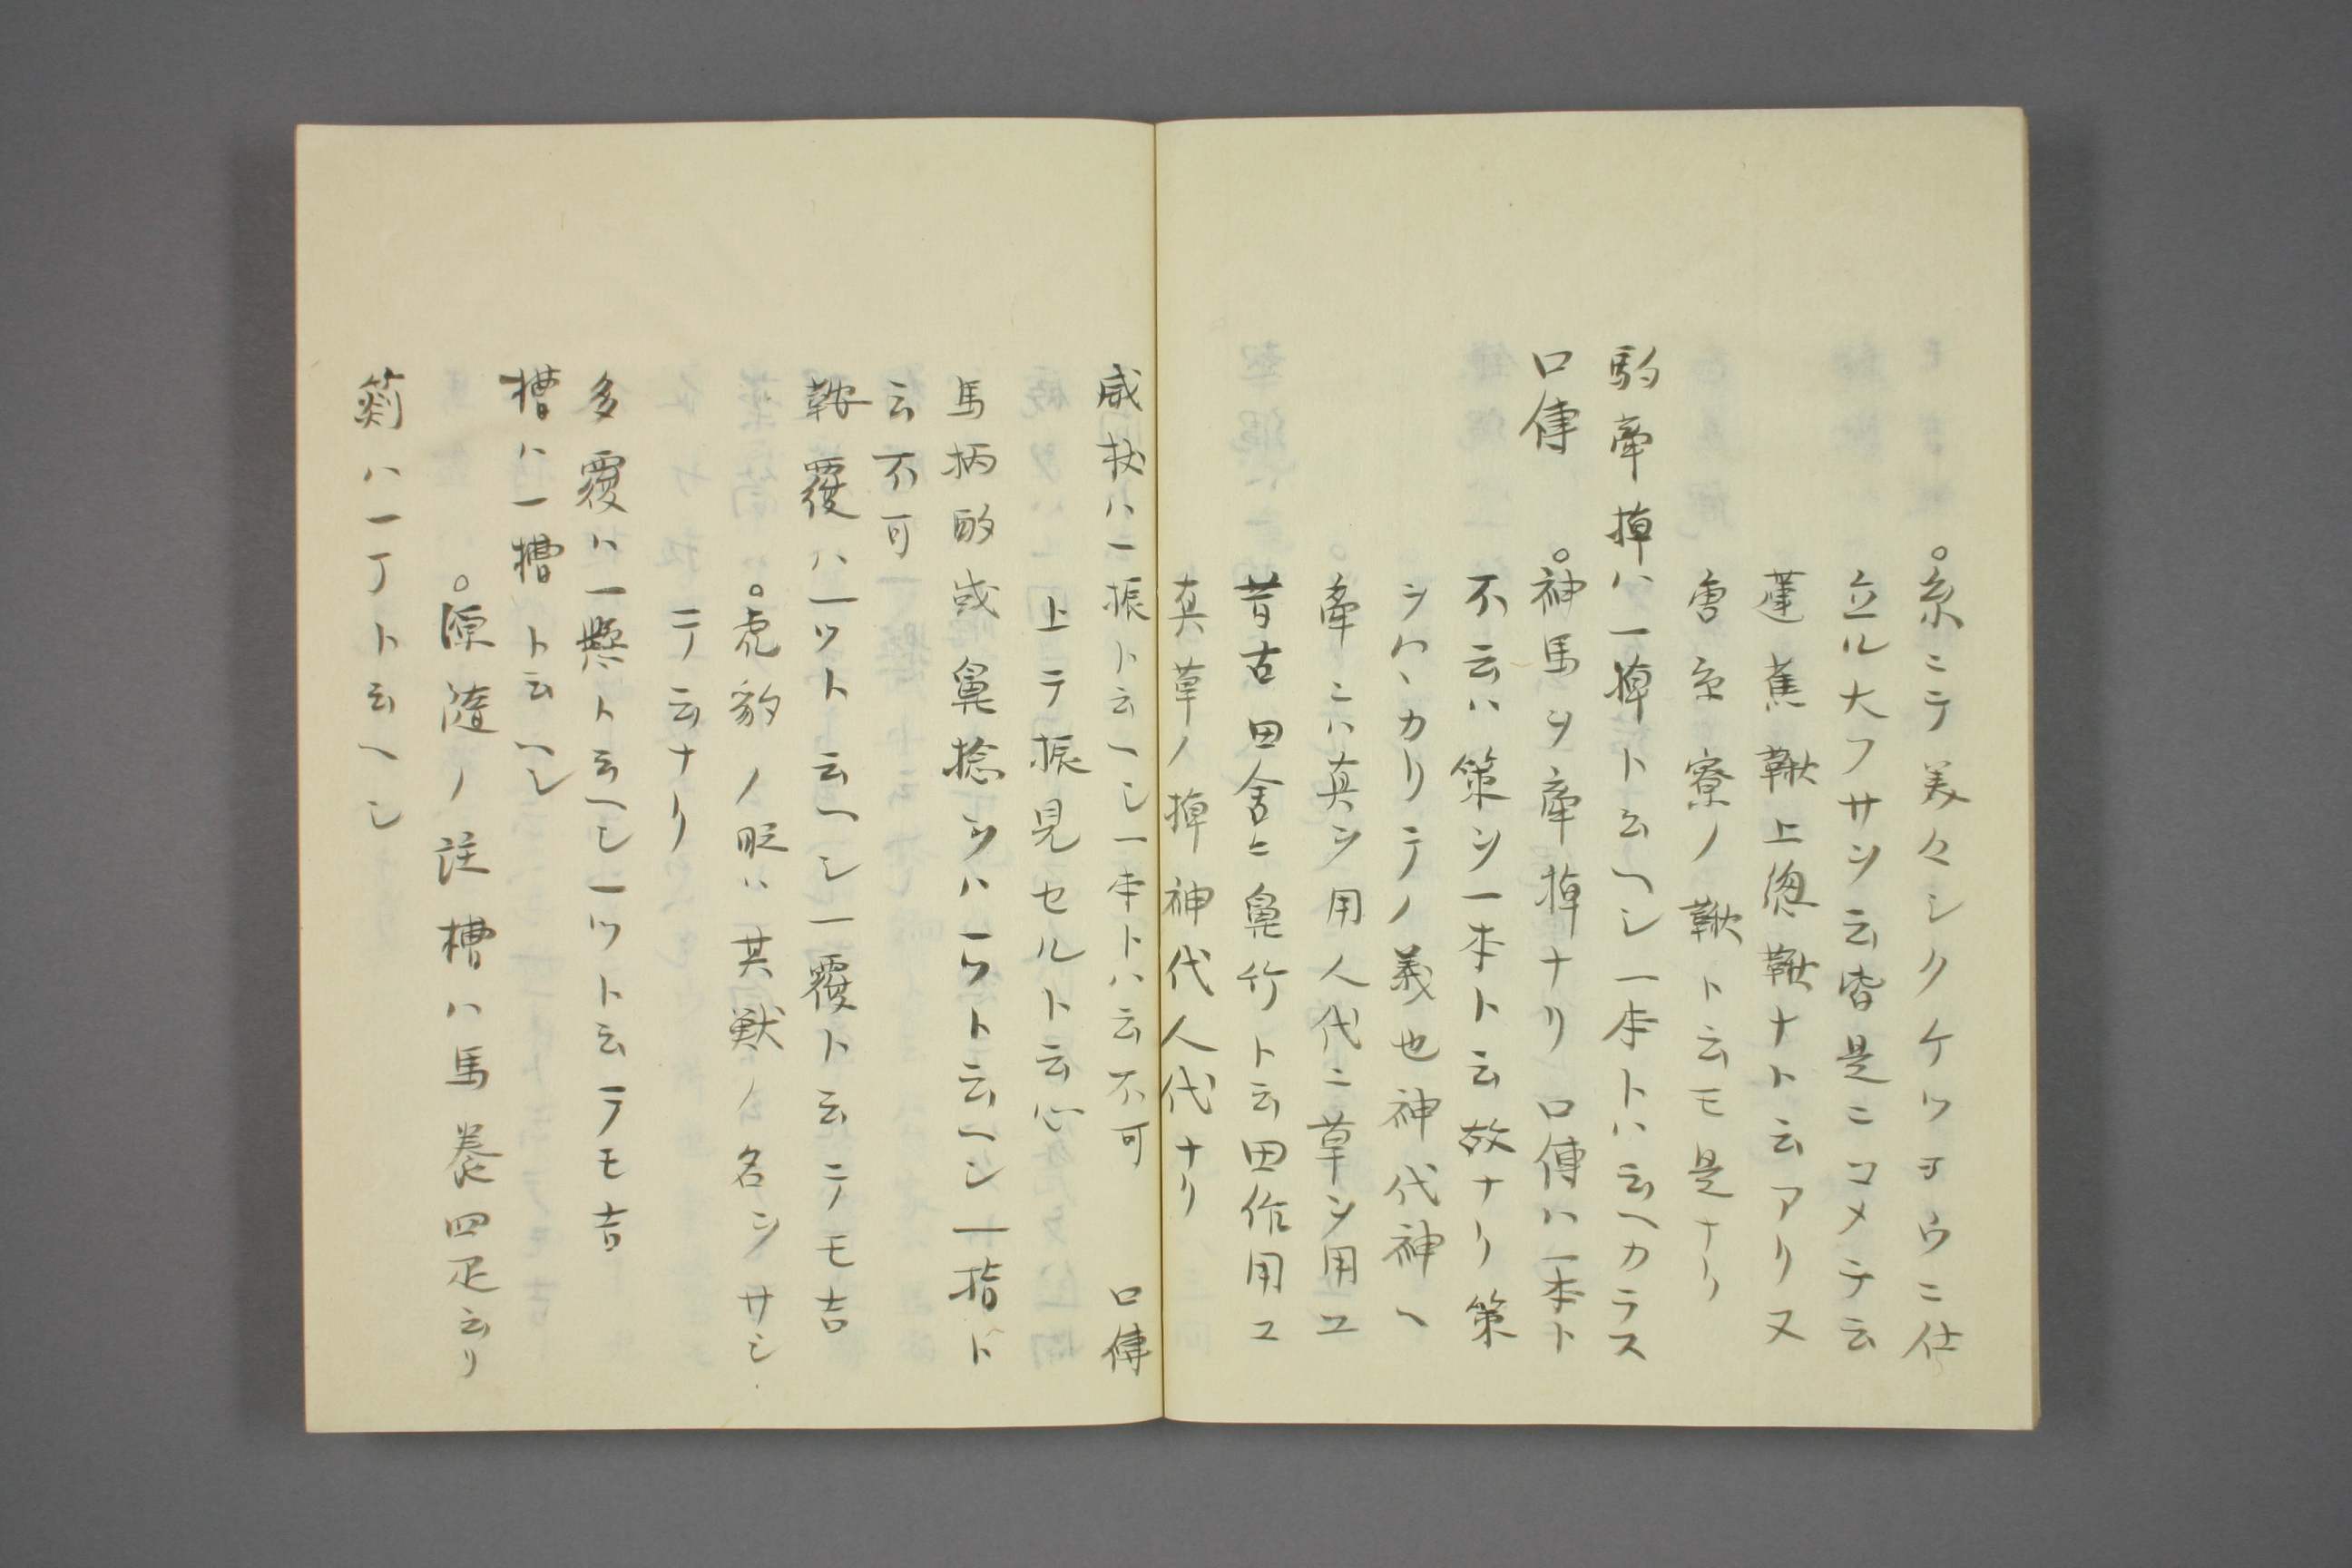 。糸ニテ美々シクケツコウニ仕
立ル大フサヲ云皆是ニコメテ云
蓬蕉鞦上総鞦ナト云アリ又
舎糸寮ノ鞦ト云モ是ナリ
駒牽棹ハ一棹ト云ヘシ一本トハ云ヘカラス
口傳　。神馬ヲ牽棹ナリ口傳ハ一本ト
不云ハ策ヲ一本ト云故ナリ策
ヲハヽカリテノ義也神代神ヘ
牽ニハ真ヲ用人代ニ草ヲ用ユ
昔古田舎ニ鼻竹ト云田作用ユ
真草ノ棹神代人代ナリ
威杖ハ一振ト云ヘシ一本トハ云不可　口傳
上テ振見セルト云心
馬柄酌或鼻捻ヲハ一ツト云ヘシ一指ト
云不可
鞍覆ハ一ツト云ヘシ一覆ト云テモ吉
。虎豹ノ眤ハ其獣ノ名ヲサシ
テ云ナリ
多覆ハ一懸ト云ヘシ一ツト云テモ吉
槽ハ一槽ト云ヘシ
。源隨ノ註槽ハ馬養四疋云リ
ハ一丁ト云ヘシ